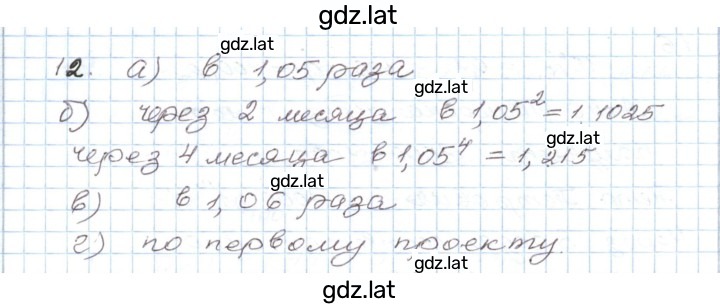 gdz.lat
gdz.lat
12. а) в 1,05 раза
gdz.lat
б) через 2 месяца в 1,05² = 1.1025
gdz.lat
через 4 месяца в 1,05⁴ = 1,215
gdz.lat
в) в 1,06 раза
gdz.lat
г) по первому проекту
gdz.lat